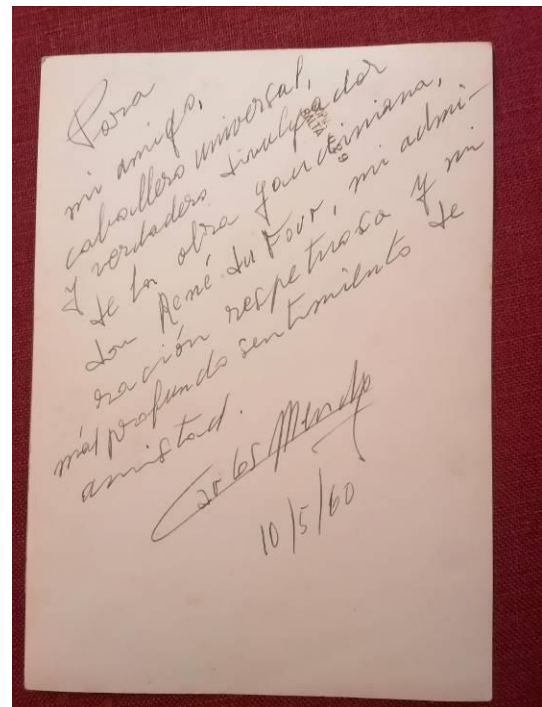 Para
mi amigo,
caballero universal,
y verdadero divulgador
de la obra gaudiniana,
don René du Four, mi admi-
ración respetuosa y mi
más profundo sentimiento de
amistad.
Carlos
10/5/60